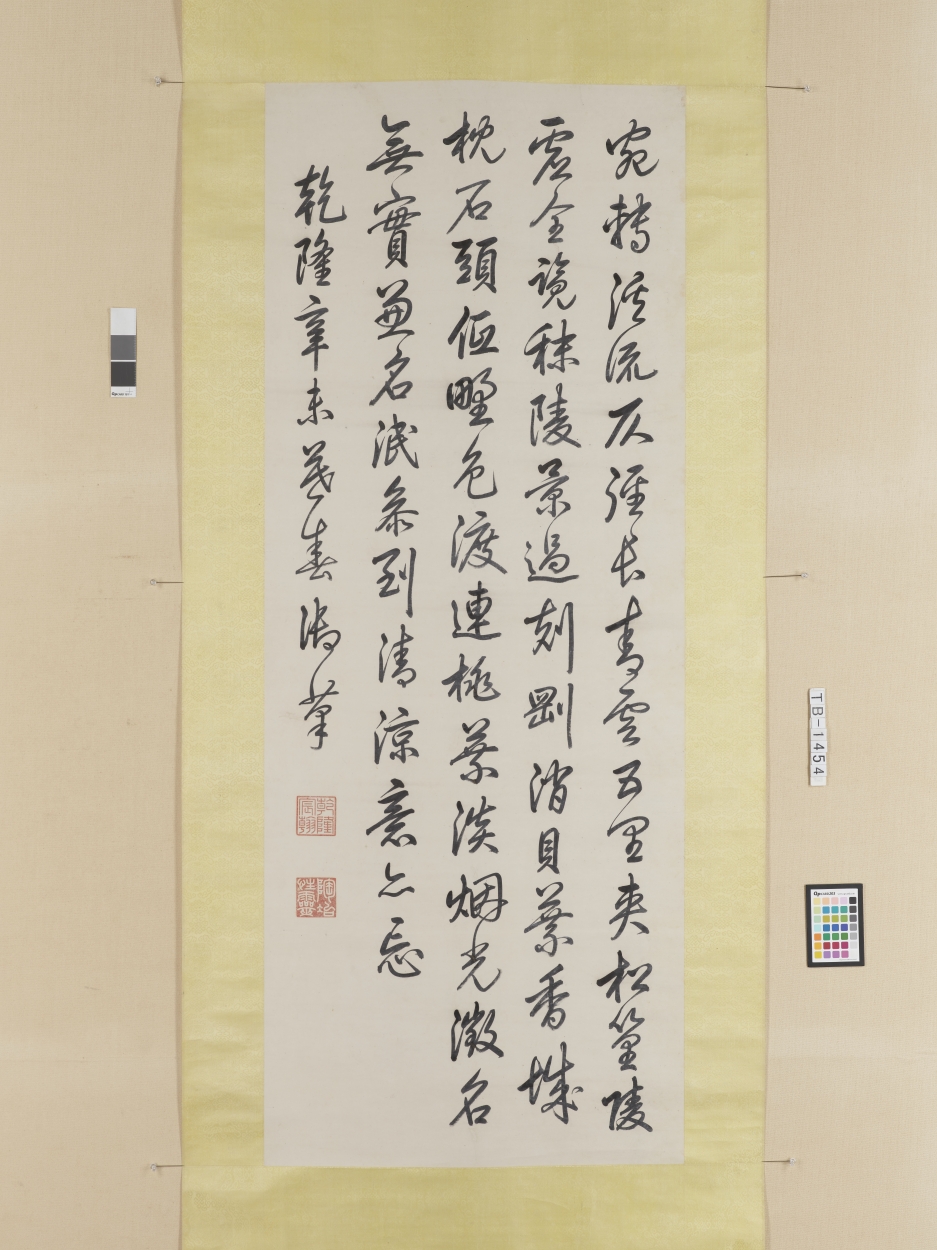 宛轉溪流仄徑長青雲五里夾松篁陵
虛全覽秣陵景過刻剛消貝葉香城
枕石頭低野色渡連桃葉淡烟光徵名
無實兼名泯叅到清涼意亦忘
乾隆辛未暮春御筆
乾隆宸翰
陶冶性靈
TB-1454